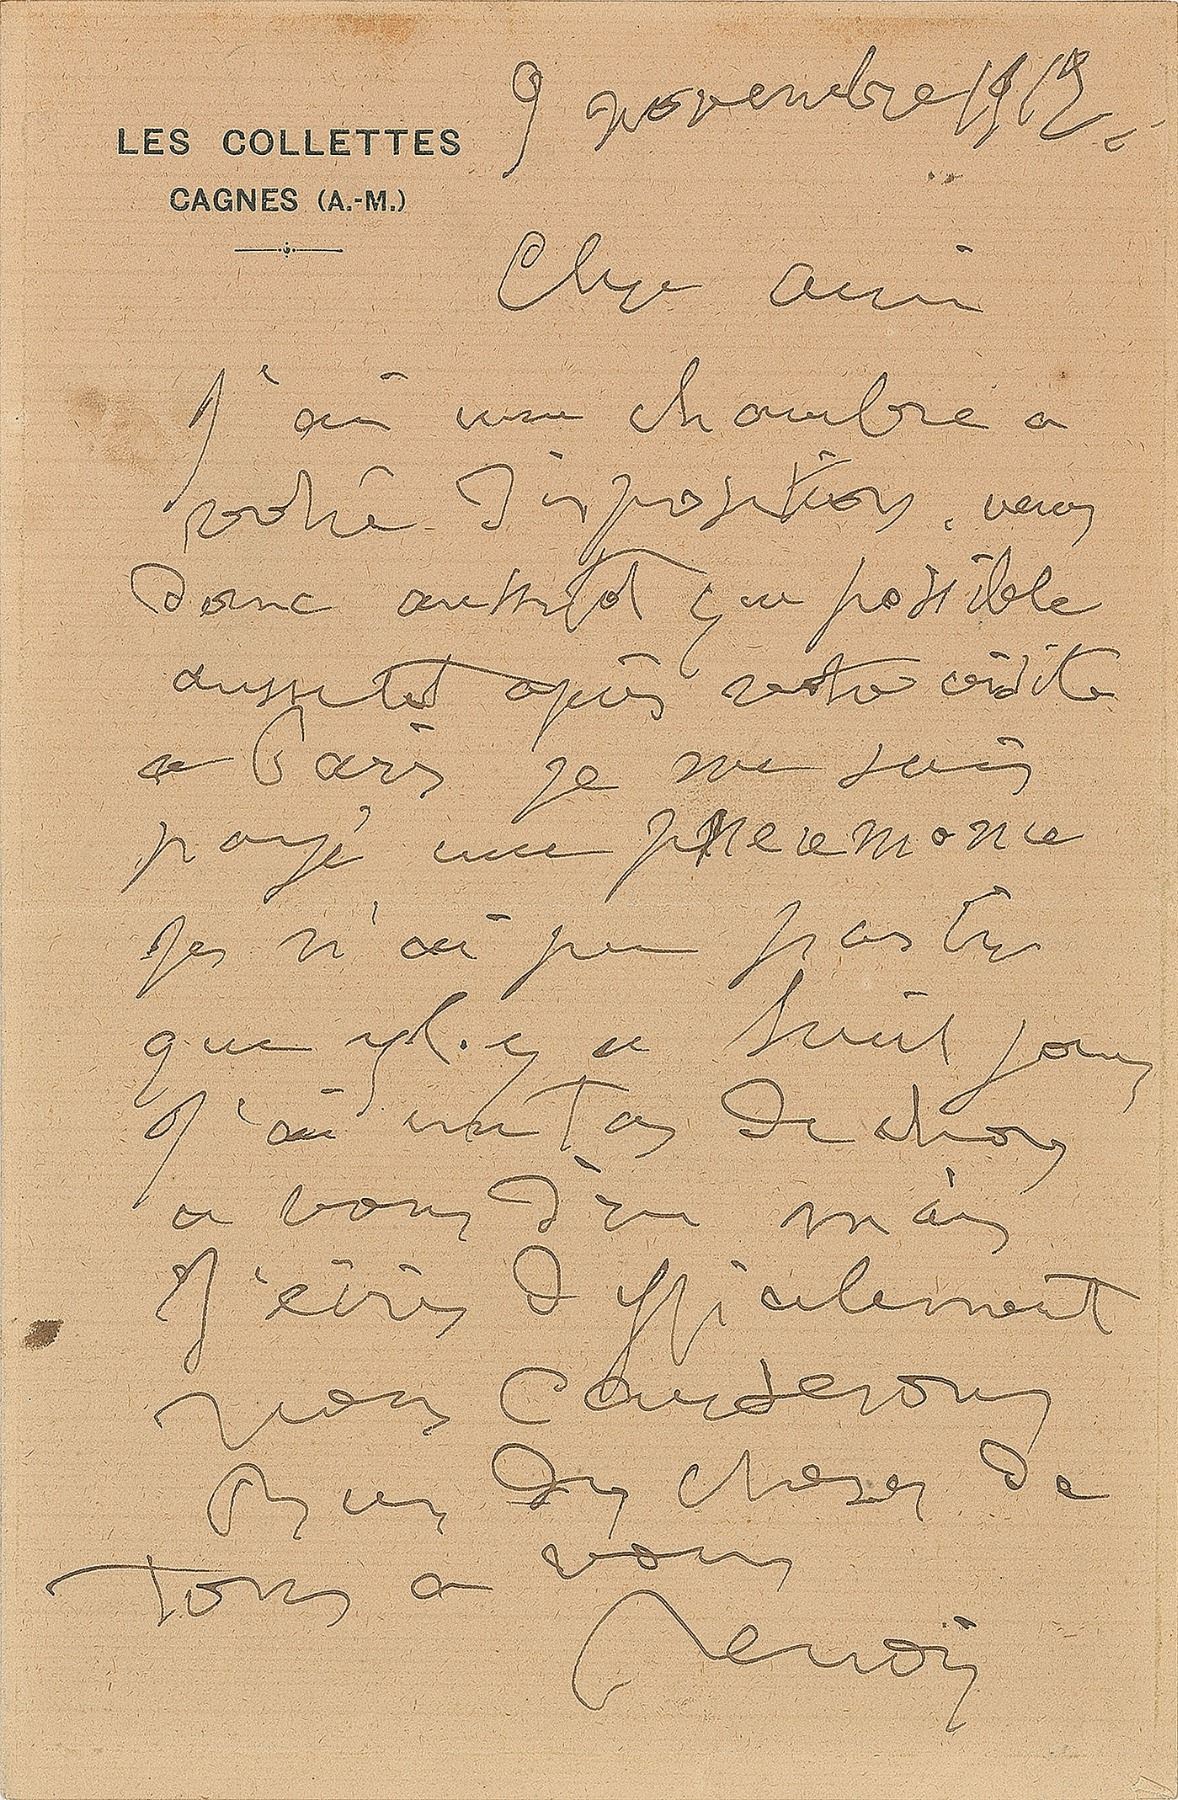 9 novembre 1912.
LES COLLETTES
CAGNES (A.-M.)
Cher ami
J'ai une chambre a
votre disposition. venez
donc aussitot que possible
aussitot après votre visite
a Paris je me suis
payé une pneumonie
je n'ai pu partir
que il.y a huit jours
J'ai un tas de choses
a vous dire mais
J'écris difficilement
nous causerons
Bien des choses de
tous a vous
Renoir